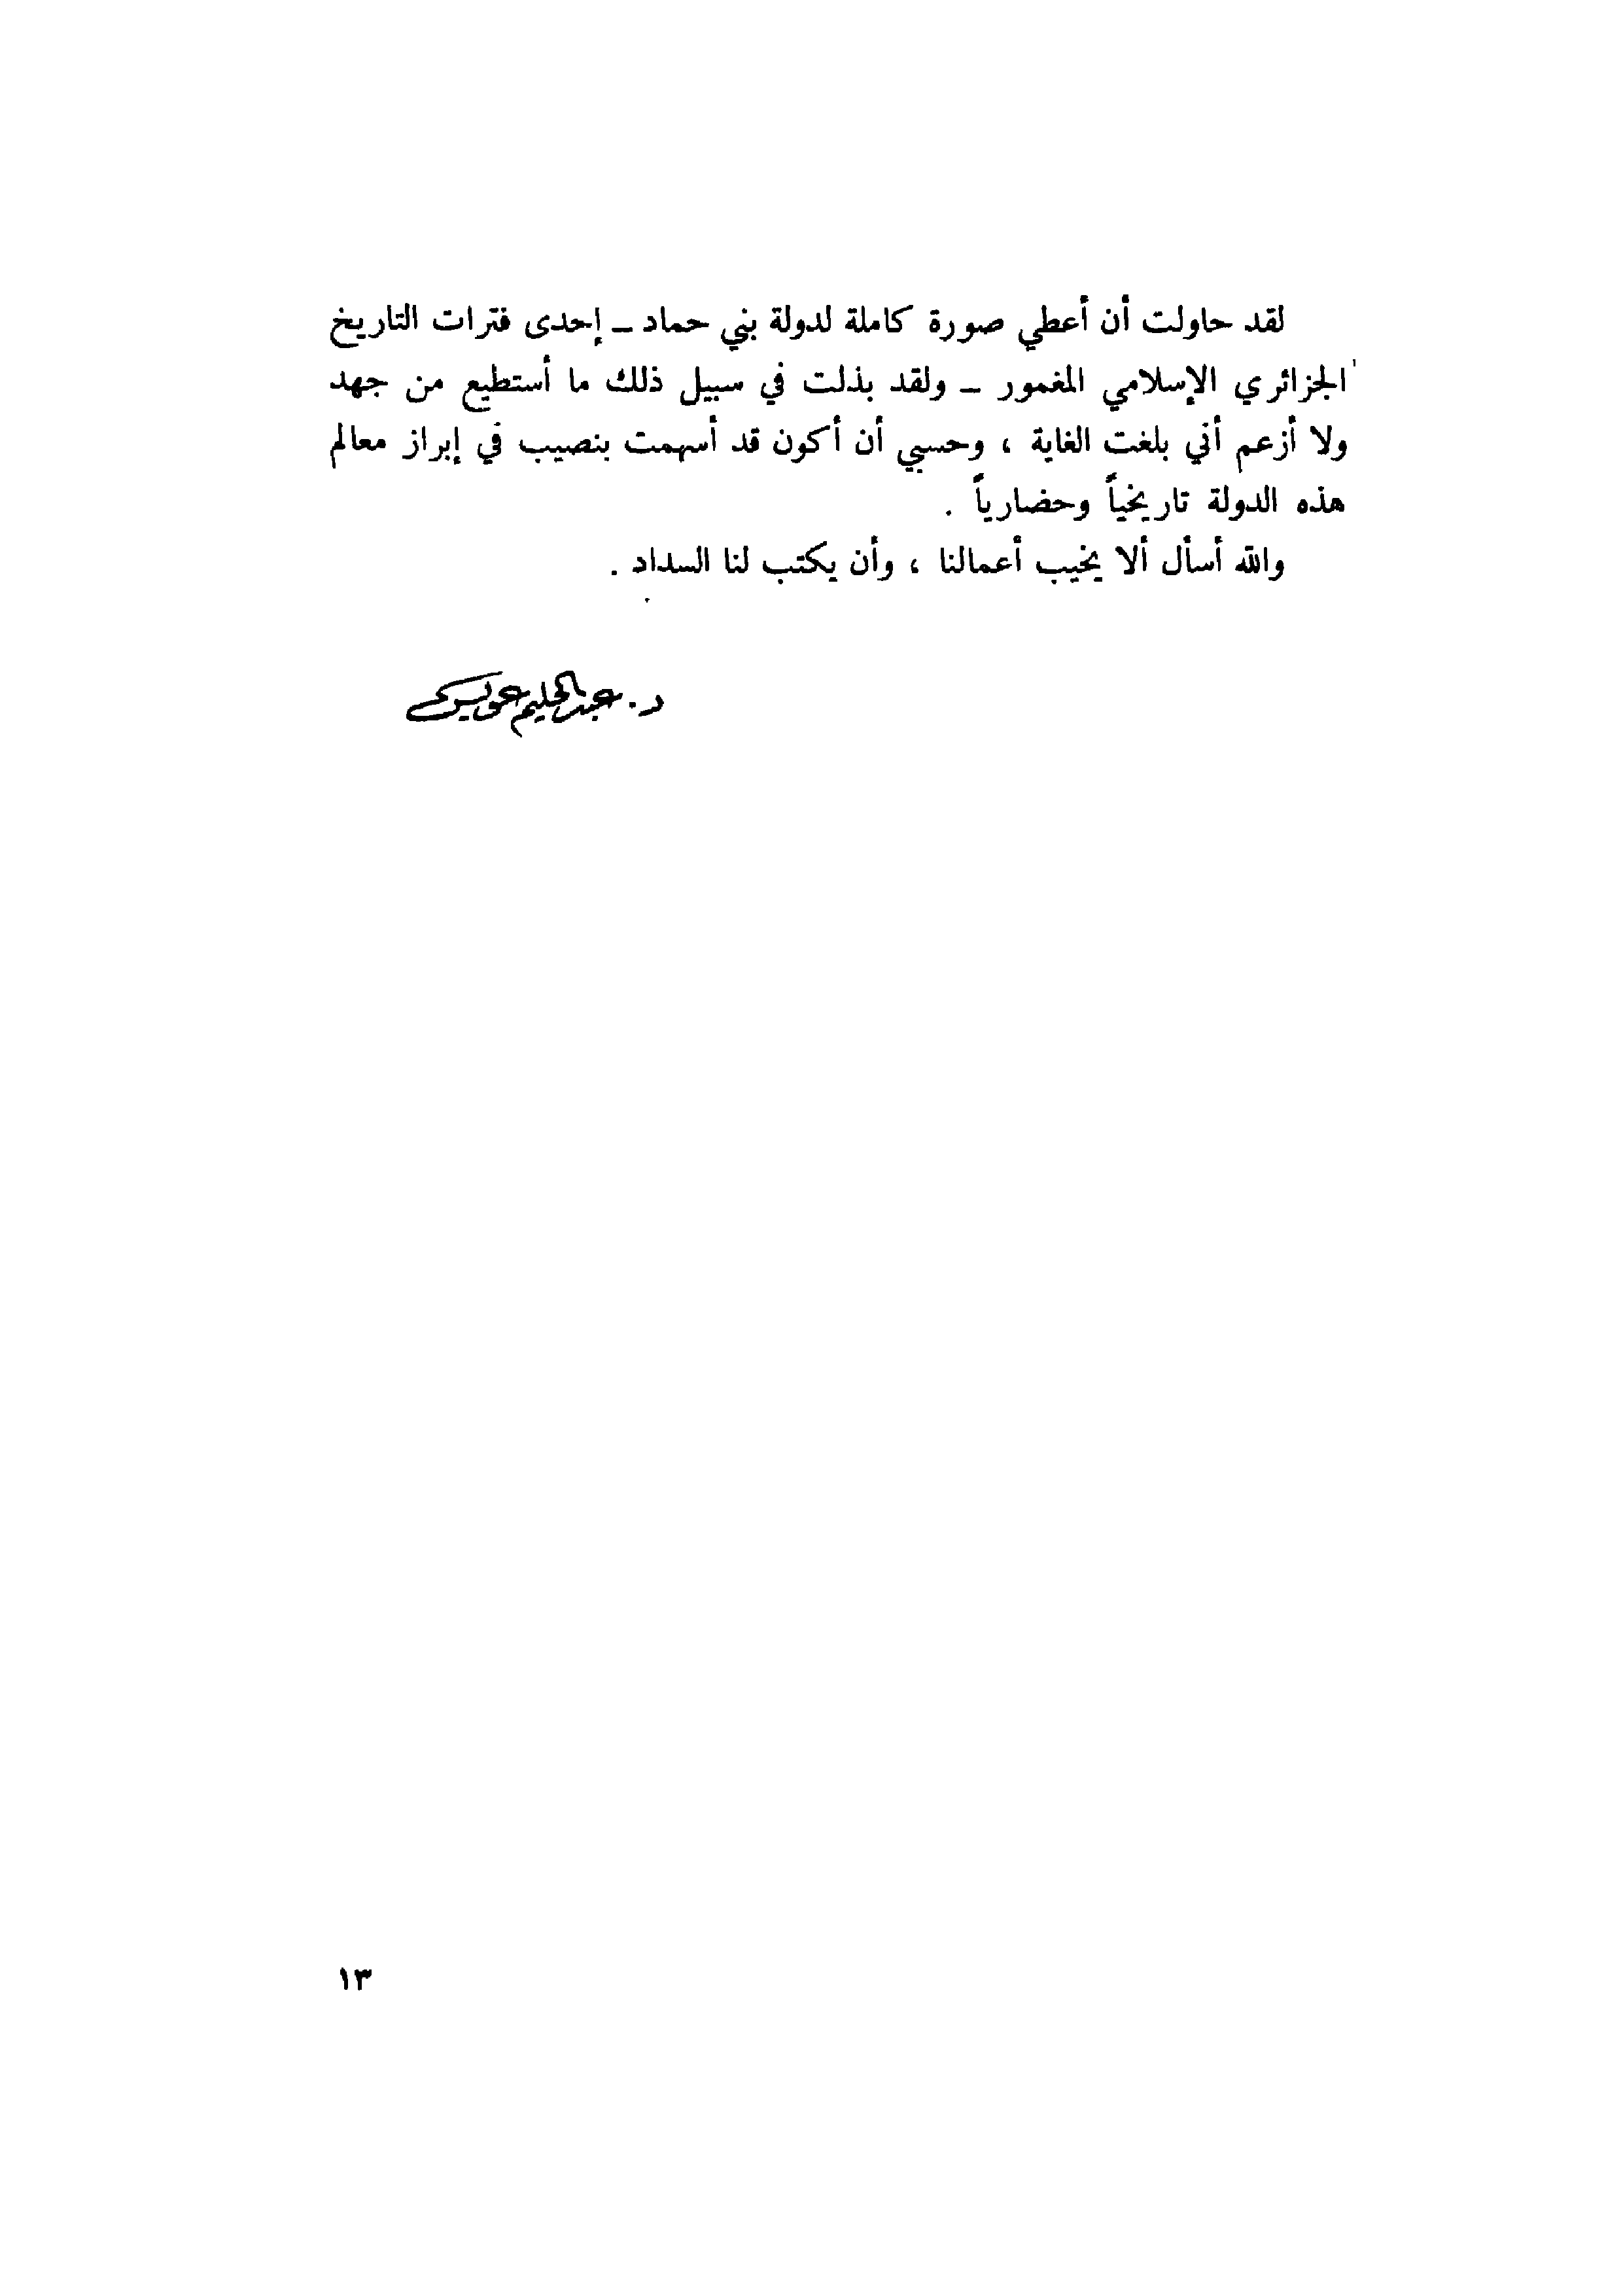 لقد حاولت أن أعطي صورة كاملة لدولة بني حماد ــ إحدى فترات التاريخ
الجزائري الإسلامي المغمور ــ ولقد بذلت في سبيل ذلك ما أستطيع من جهد
ولا أزعم أني بلغت الغاية ، وحسبي أن أكون قد أسهمت بنصيب في إبراز معالم
هذه الدولة تاريخياً وحضارياً .
والله أسأل ألا يخيب أعمالنا ، وأن يكتب لنا السداد .
د. عبد الحليم عويس
١٣